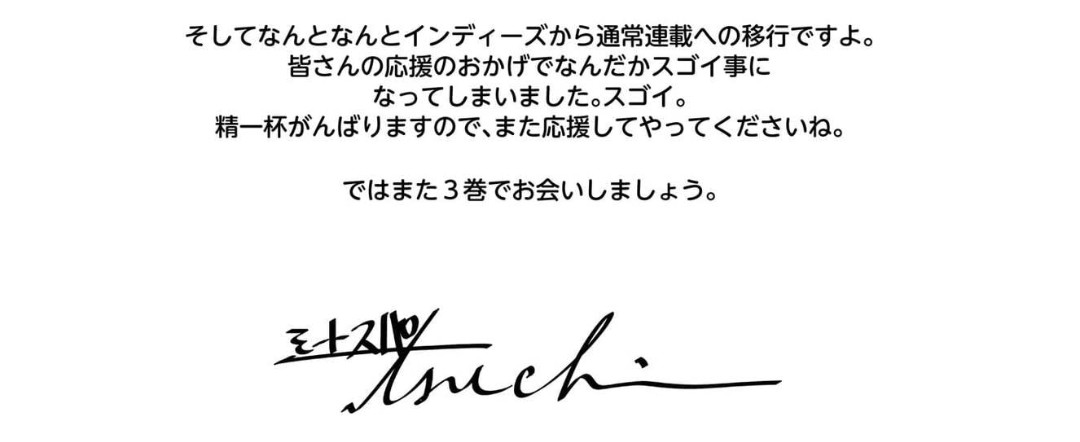 そしてなんとなんとインディーズから通常連載への移行ですよ。
皆さんの応援のおかげでなんだかスゴイ事に
なってしまいました。スゴイ。
精一杯がんばりますので、また応援してやってくださいね。
ではまた３巻でお会いしましょう。
tsuchi